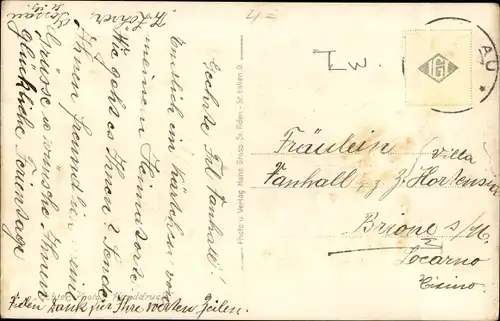 4.-
T. W.
AU
Geehrte Frl. Vanhall!
Endlich ein Kärtchen von
meinem Heimatorte.
Wie geht es Ihnen? Sende
Ihnen freundliche
Grüsse u. wünsche Ihnen
glückliche Ferientage
Vielen Dank für Ihre werten Zeilen.
Gossau
Photo u. Verlag Hans Gross, St. Fiden - St. Gallen O
Fräulein
Vanhall, z. Z. (Villa
Hortensia
Brione s/M.
Locarno
Ticino.